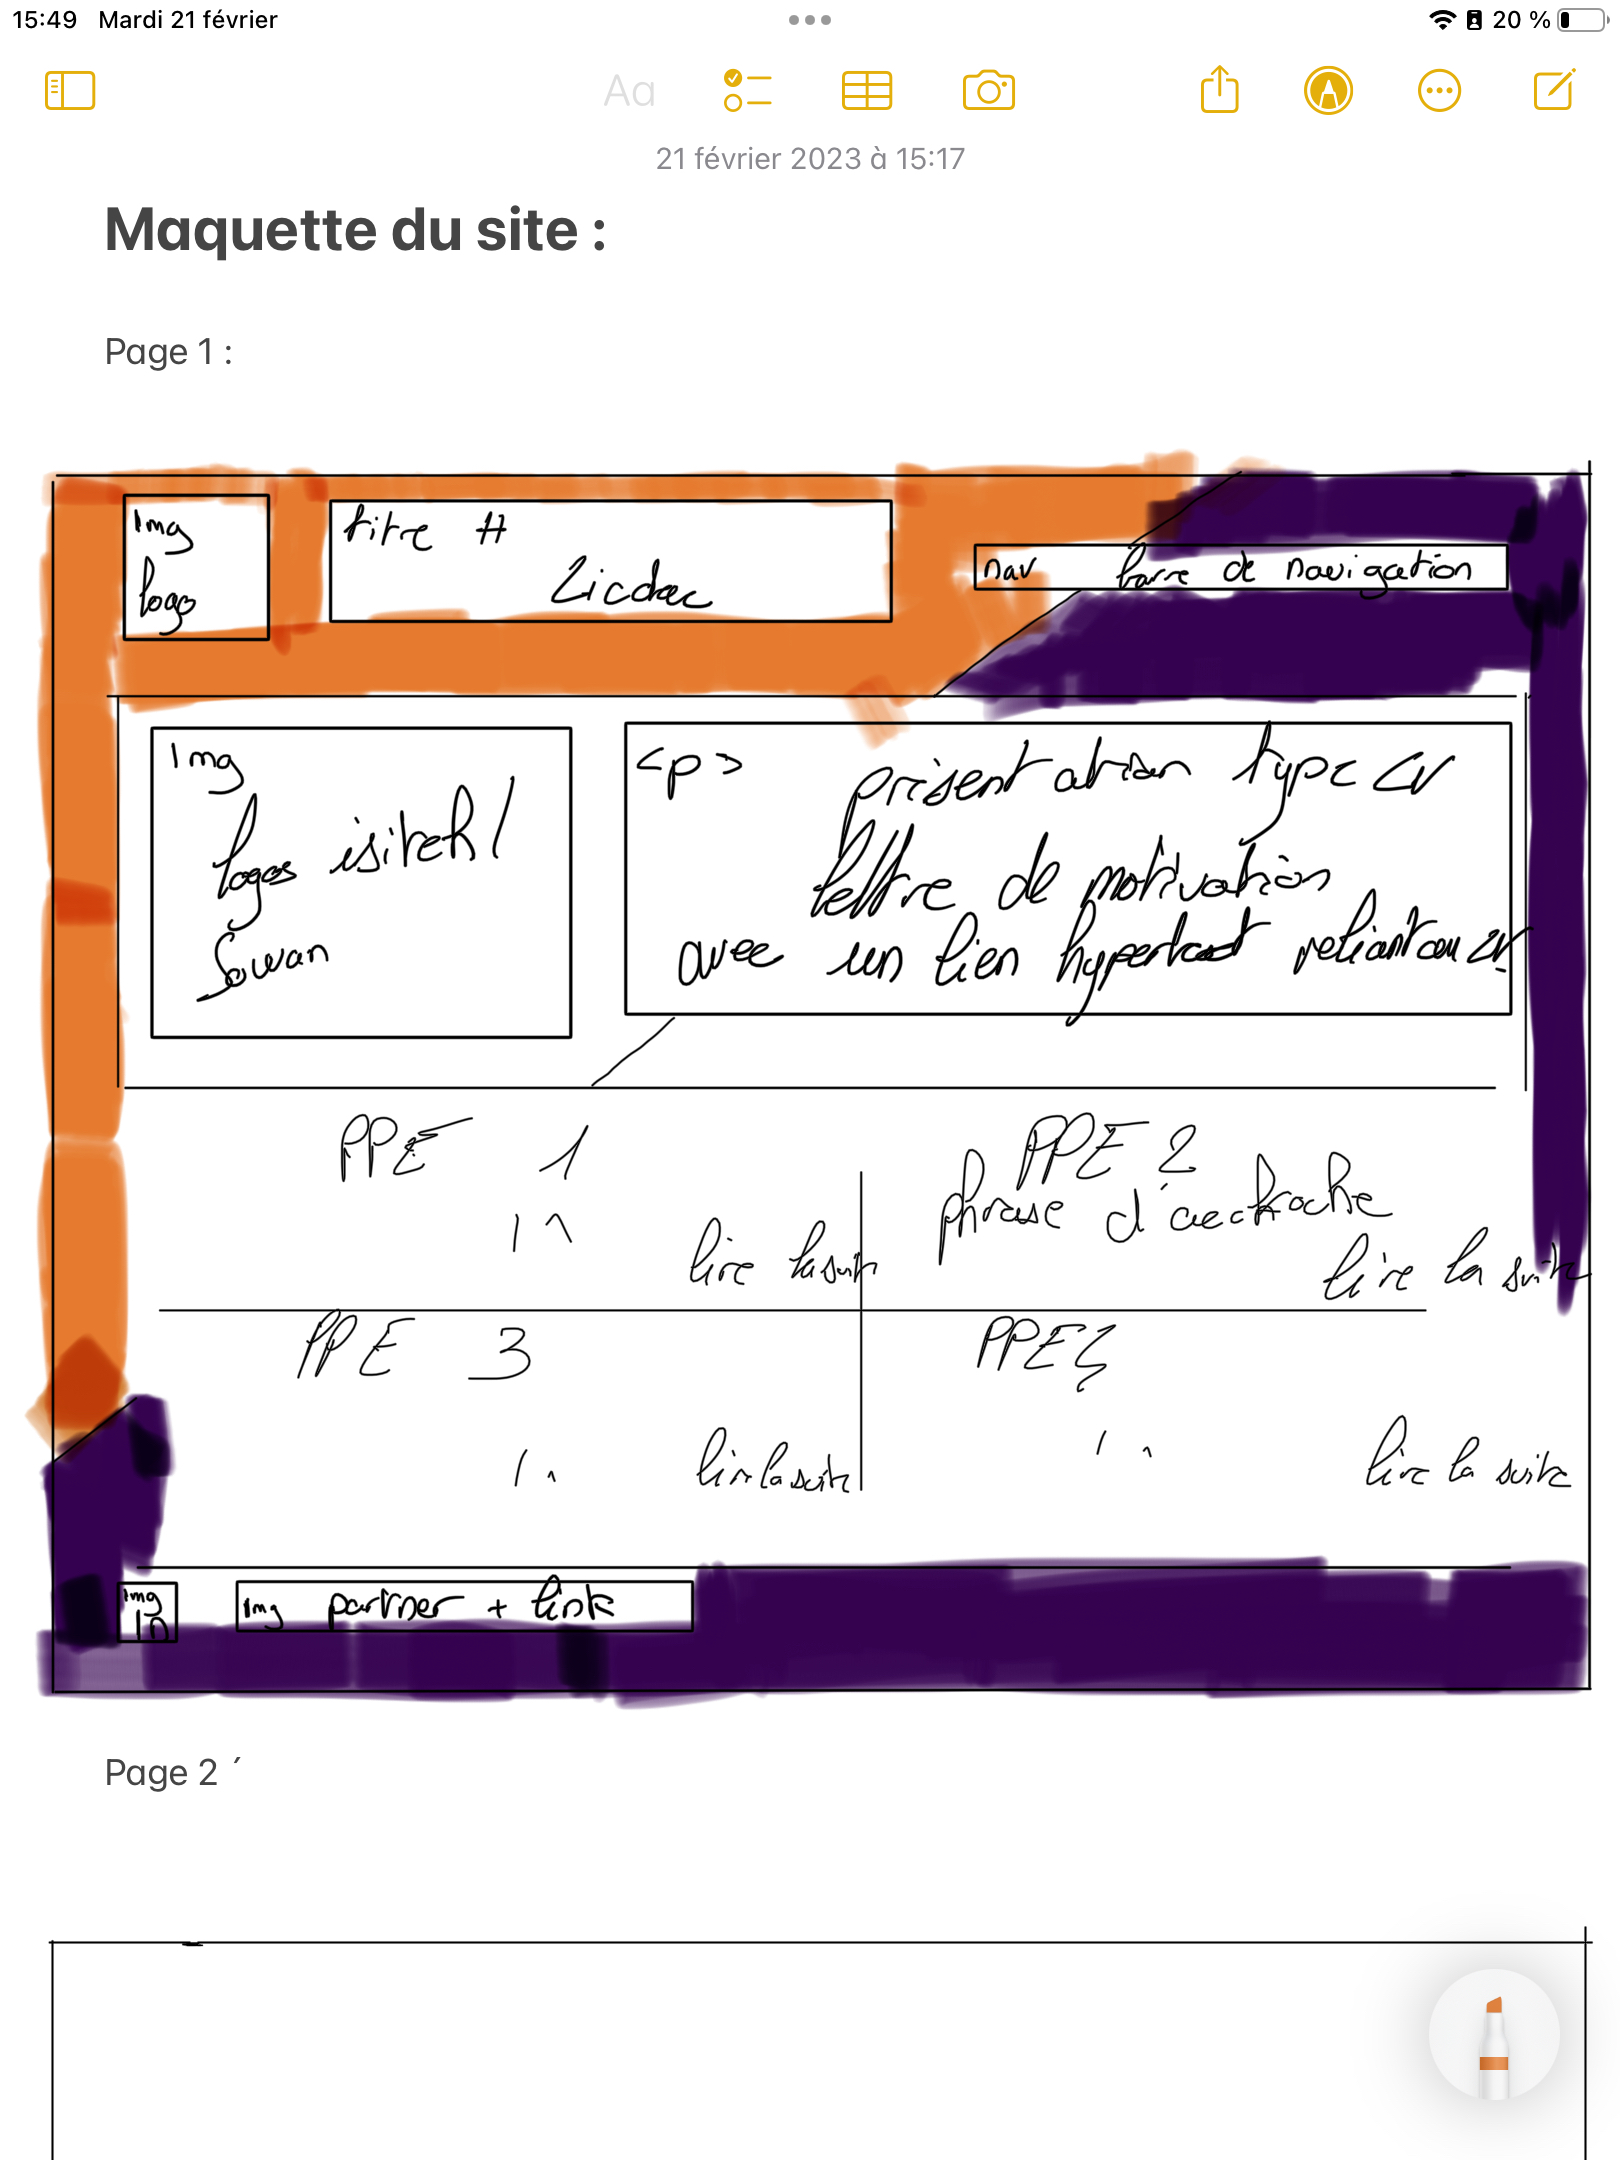 15:49 Mardi 21 février
20 %
Aa
21 février 2023 à 15:17
Maquette du site :
Page 1 :
img
logo
titre #
nav barre de navigation
img
logos isitech /
<p>
présentation type CV
lettre de motivation
avec un lien hypertext reliant au CV
PPE 1
lire la suite
PPE 2
phrase d'accroche
lire la suite
PPE 3
lire la suite
PPE
lire la suite
img
img partner + link
Page 2 ´